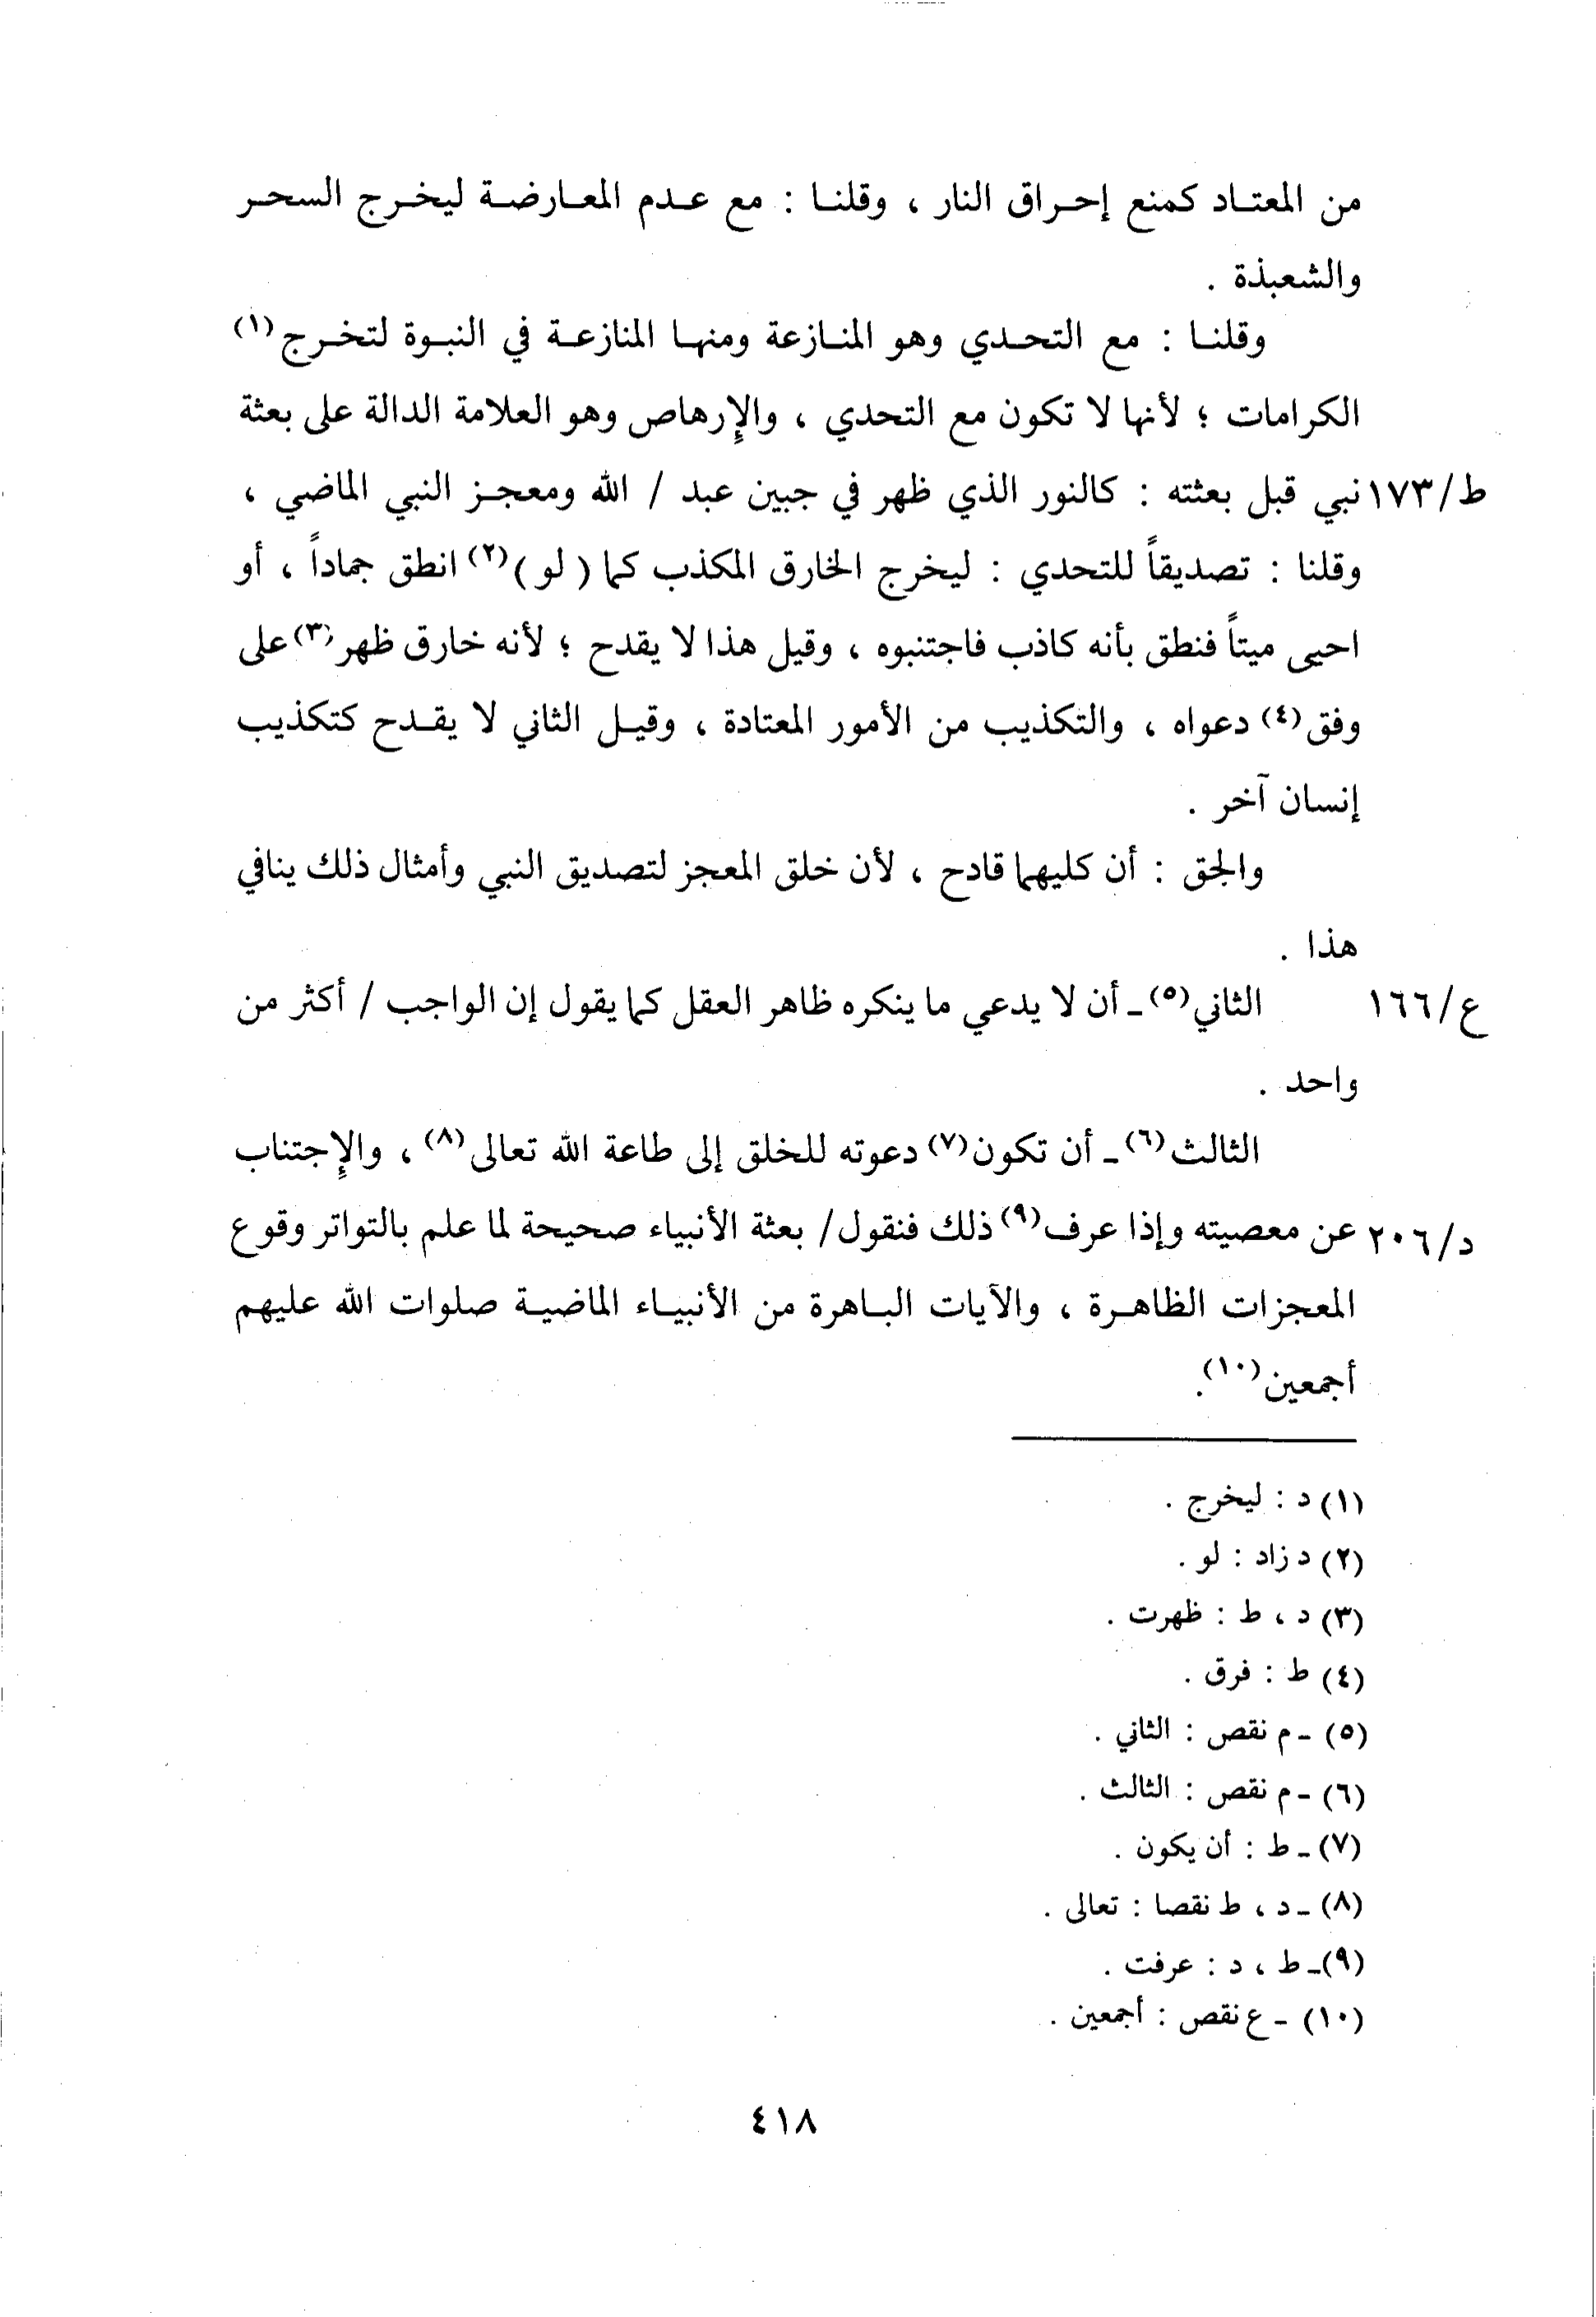 من المعتاد كمنع إحراق النار ، وقلنا : مع عدم المعارضة ليخرج السحر
والشعبذة .
وقلنا : مع التحدي وهو المنازعة ومنها المنازعة في النبوة لتخرج(١)
الكرامات ؛ لأنها لا تكون مع التحدي ، والإرهاص وهو العلامة الدالة على بعثة
ط/١٧٣ نبي قبل بعثته : كالنور الذي ظهر في جبين عبد / الله ومعجز النبي الماضي ،
وقلنا : تصديقاً للتحدي : ليخرج الخارق المكذب كما ( لو )(٢) انطق جماداً ، أو
احيى ميتاً فنطق بأنه كاذب فاجتنبوه ، وقيل هذا لا يقدح ؛ لأنه خارق ظهر(٣) على
وفق(٤) دعواه ، والتكذيب من الأمور المعتادة ، وقيل الثاني لا يقدح كتكذيب
إنسان آخر .
والحق : أن كليهما قادح ، لأن خلق المعجز لتصديق النبي وأمثال ذلك ينافي
هذا .
ع/١٦٦ الثاني(٥) ـ أن لا يدعي ما ينكره ظاهر العقل كما يقول إن الواجب / أكثر من
واحد .
الثالث(٦) ـ أن تكون(٧) دعوته للخلق إلى طاعة الله تعالى(٨) ، والإجتناب
د/٢٠٦ عن معصيته وإذا عرف(٩) ذلك فنقول / بعثة الأنبياء صحيحة لما علم بالتواتر وقوع
المعجزات الظاهرة ، والآيات الباهرة من الأنبياء الماضية صلوات الله عليهم
أجمعين(١٠).
(١) د : ليخرج .
(٢) د زاد : لو .
(٣) د ، ط : ظهرت .
(٤) ط : فرق .
(٥) ـ م نقص : الثاني .
(٦) ـ م نقص : الثالث .
(٧) ـ ط : أن يكون .
(٨) ـ د ، ط نقصا : تعالى .
(٩) ـ ط ، د : عرفت .
(١٠) ـ ع نقص : أجمعين .
٤١٨